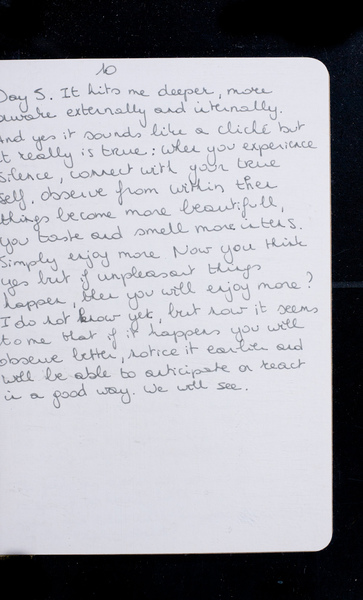 10
Day 5. It hits me deeper, more
aware externally and internally.
And yes it sounds like a cliché but
it really is true: when you experience
silence, connect with your true
self, observe from within then
things become more beautifull,
you taste and smell more intens.
Simply enjoy more. Now you think
yes but if unpleasant things
happen, then you will enjoy more?
I do not know yet, but now it seems
to me that if it happens you will
observe better, notice it earlier and
will be able to anticipate or react
in a good way. We will see.